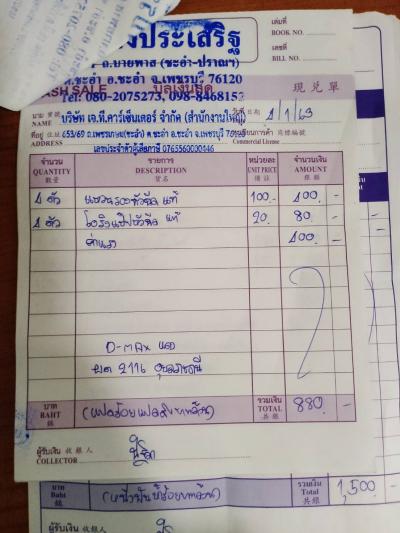 งประเสริฐ
ถ.บายพาส (ชะอำ-ปราณฯ)
ต.ชะอำ อ.ชะอำ จ.เพชรบุรี 76120
CASH SALE บิลเงินสด 現兑單
Tel: 080-2075273, 098-8468153
เล่มที่
BOOK NO.
เลขที่
BILL NO.
นาม
NAME
บริษัท เจ.พี.คาร์เซ็นเตอร์ จำกัด (สำนักงานใหญ่)
วันที่ 4/1/63
ที่อยู่
ADDRESS
653/69 ถ.เพชรเกษม(ชะอำ) ต.ชะอำ อ.ชะอำ จ.เพชรบุรี 76120
ทะเบียนการค้า
Commercial License
เลขประจำตัวผู้เสียภาษี 0765560000446
จำนวน รายการ หน่วยละ จำนวนเงิน
QUANTITY DESCRIPTION UNIT PRICE AMOUNT
數量 貨名
4 ตัว แหวนรองหัวฉีด แท้ 100.- 400.-
4 ตัว โอริงแป๊ปหัวฉีด แท้ 20. 80.-
ค่าแรง 400.-
D-MAX แดง
บต 2116 อุบลราชธานี
บาท
BAHT
(แปดร้อยแปดสิบบาทถ้วน)
รวมเงิน
TOTAL
880.-
ผู้รับเงิน 收銀人
COLLECTOR
บาท
Baht
(หนึ่งพันห้าร้อยบาทถ้วน)
รวมเงิน
Total
1,500.-
ผู้รับเงิน 收銀人